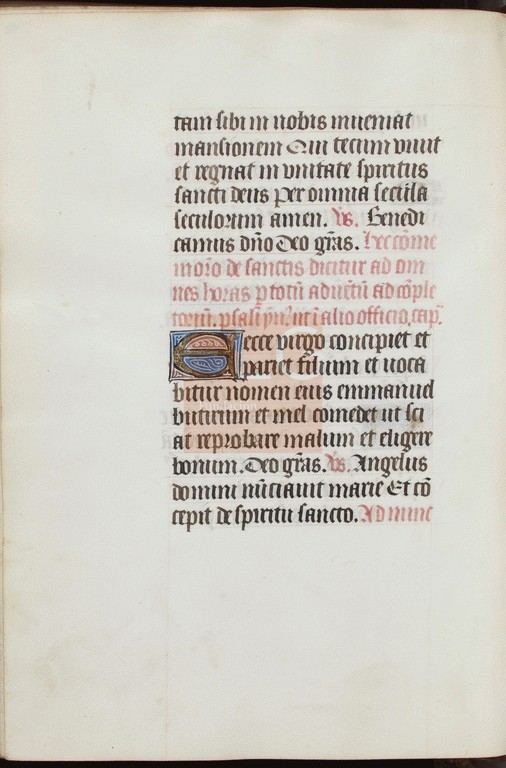 tam sibi in nobis inueniat
mansionem Qui tecum viuit
et regnat in vnitate spiritus
sancti deus Per omnia secula
seculorum amen. Vs. Benedi
camus dño Deo grãs. Hec cõme
moro de sanctis dicitur ad om
nes horas p totũ aduẽtũ ad cõple
toriũ. psal ỹm ut ĩ alio officio. cap.
Ecce virgo concipiet et
pariet filium et voca
bitur nomen eius emmanuel
butirum et mel comedet ut sci
at reprobare malum et eligere
bonum. Deo grãs. Vs. Angelus
domini nũciauit marie Et cõ
cepit de spiritu sancto. Ad nunc